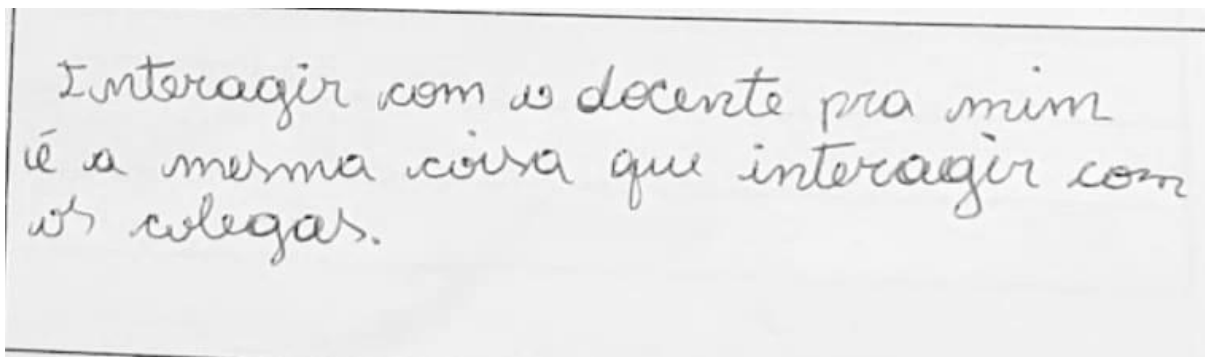 Interagir com o docente pra mim
é a mesma coisa que interagir com
os colegas.